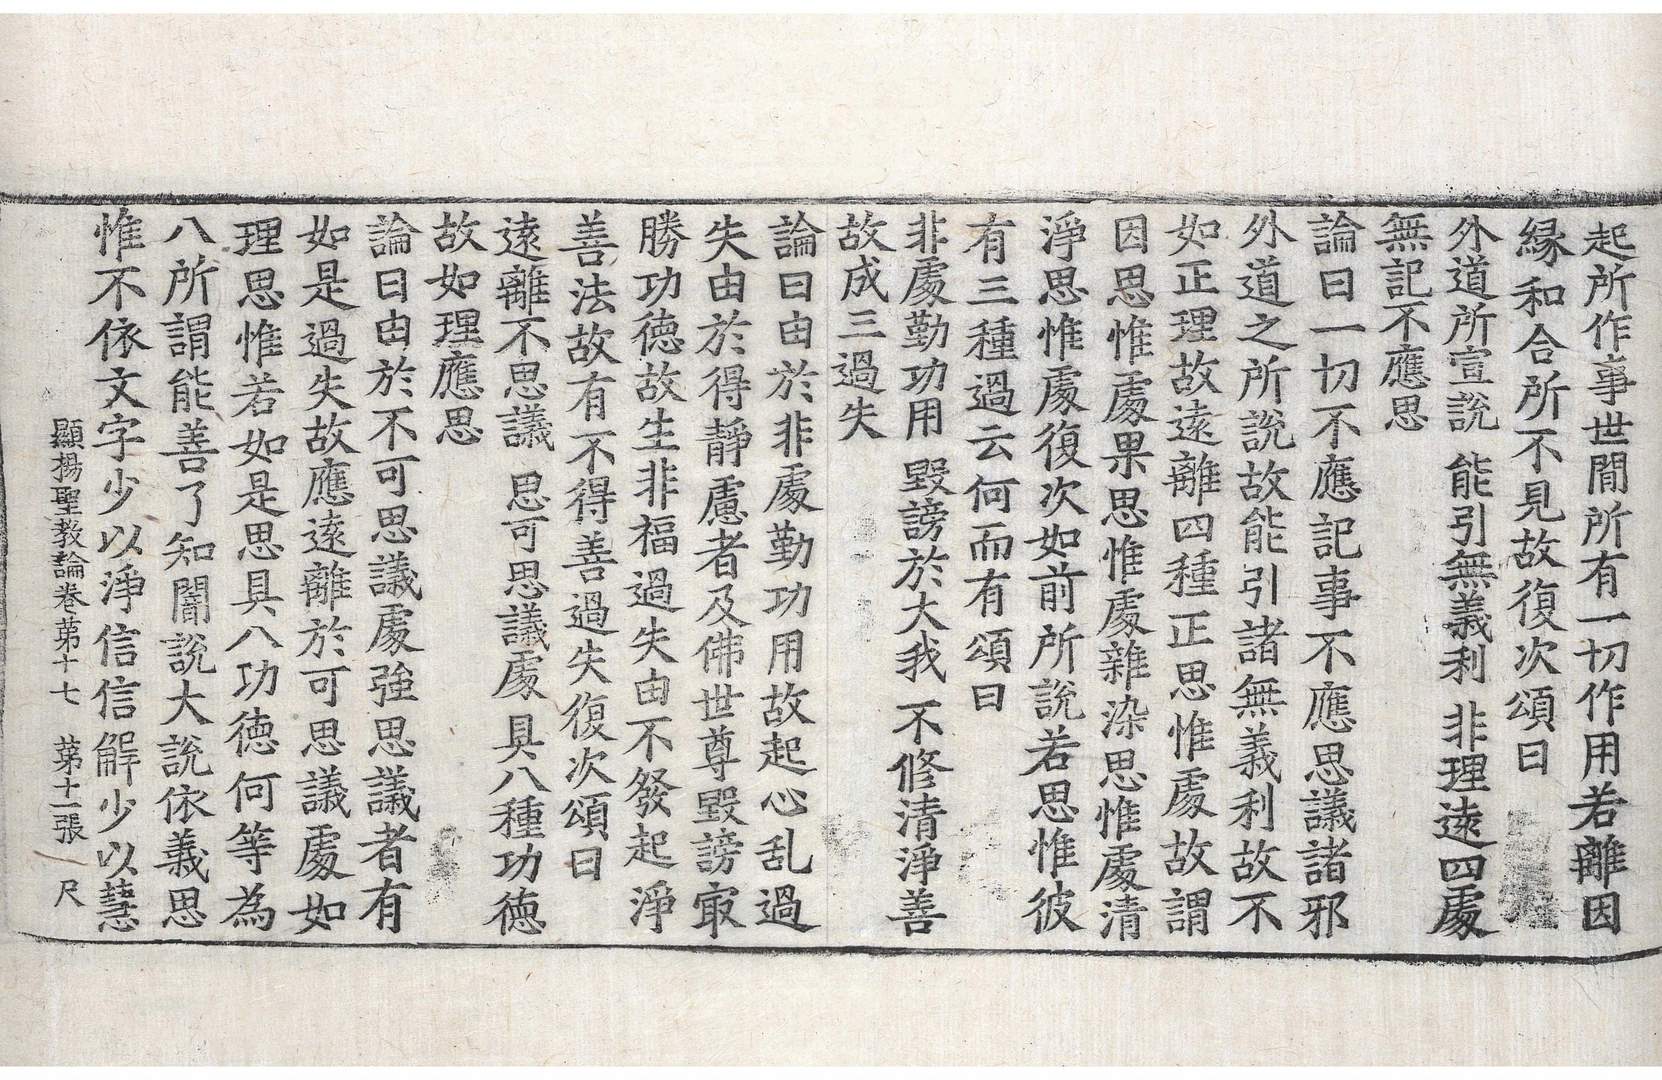 起所作事世間所有一切作用若離因
縁和合所不見故復次頌曰
外道所宣説　能引無義利　非理遠四處
無記不應思
論曰一切不應記事不應思議諸邪
外道之所説故能引諸無義利故不
如正理故遠離四種正思惟處故謂
因思惟處果思惟處雜染思惟處清
淨思惟處復次如前所説若思惟彼
有三種過云何而有頌曰
非處勤功用　毀謗於大我　不修清淨善
故成三過失
論曰由於非處勤功用故起心乱過
失由於得靜慮者及佛世尊毀謗㝡
勝功德故生非福過失由不發起淨
善法故有不得善過失復次頌曰
遠離不思議　思可思議處　具八種功德
故如理應思
論曰由於不可思議處強思議者有
如是過失故應遠離於可思議處如
理思惟若如是思具八功德何等為
八所謂能善了知闇説大説依義思
惟不依文字少以淨信信解少以慧
顯揚聖教論卷苐十七　苐十一張　尺